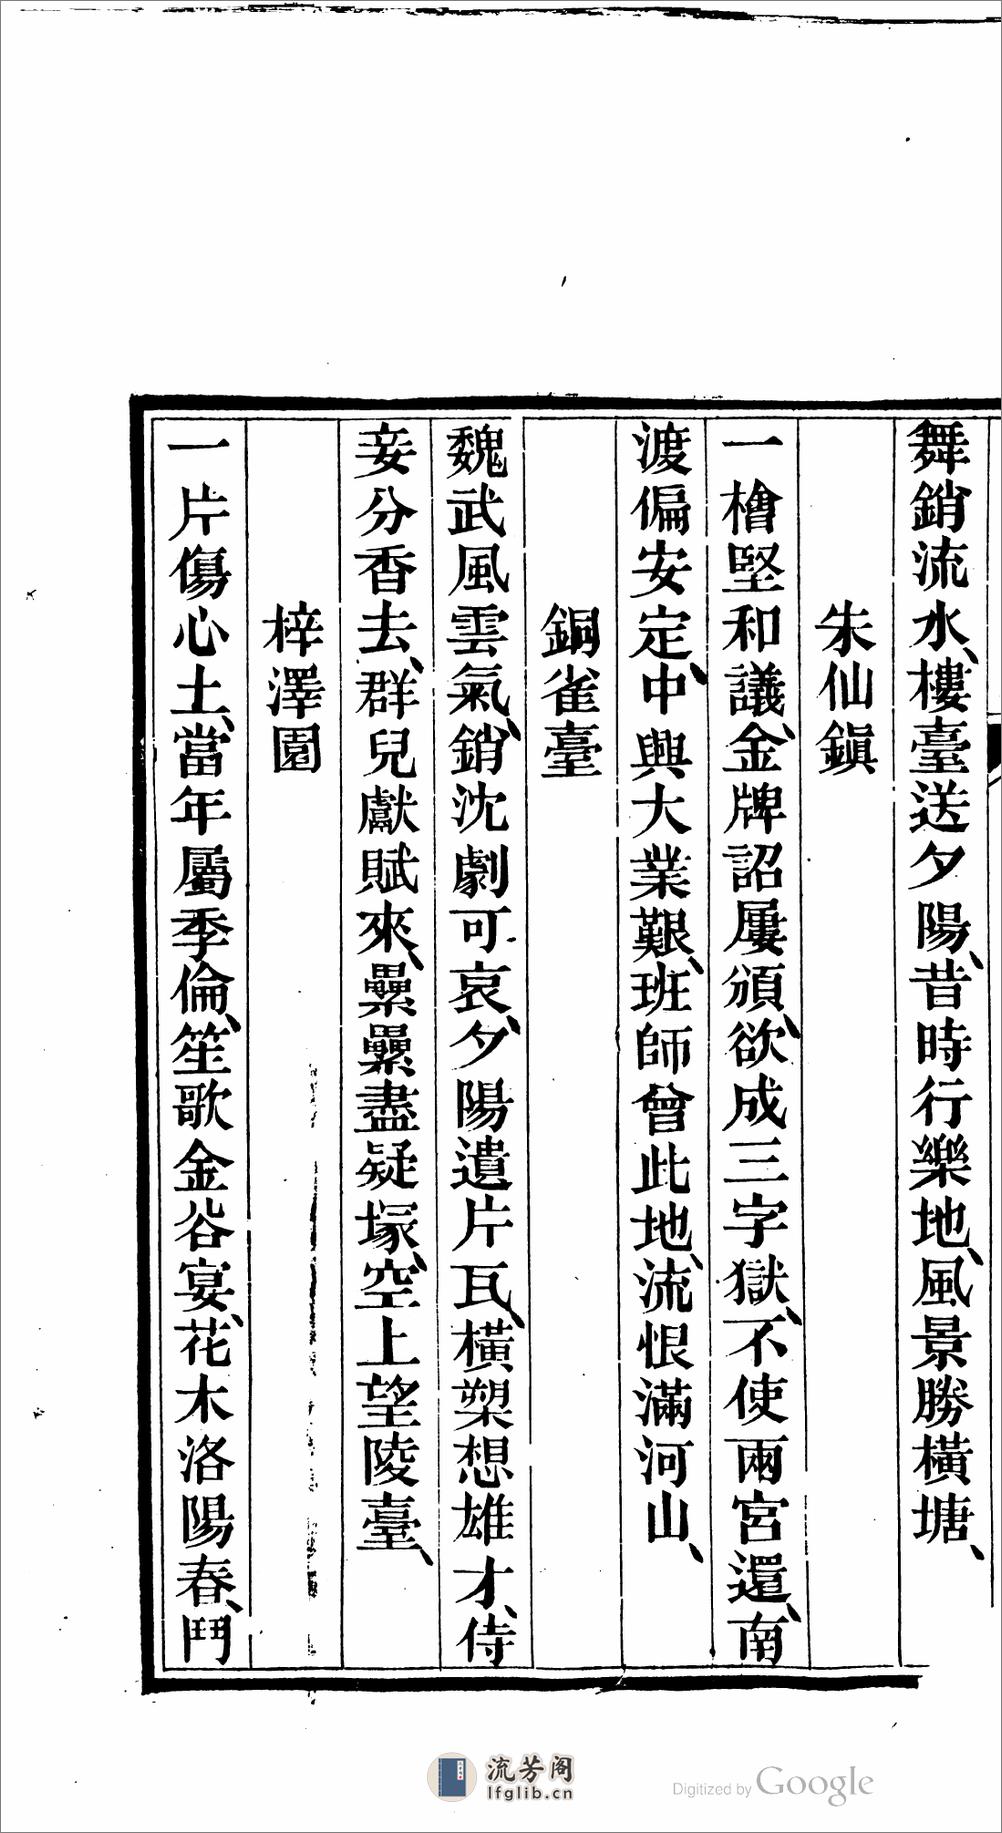 舞銷流水、樓臺送夕陽、昔時行樂地、風景勝橫塘、
朱仙鎭
一檜堅和議、金牌詔屢頒、欲成三字獄、不使兩宮還、南
渡偏安定、中興大業艱、班師曾此地、流恨滿河山、
銅雀臺
魏武風雲氣、銷沈劇可哀、夕陽遺片瓦、橫槊想雄才、侍
妾分香去、群兒獻賦來、纍纍盡疑塚、空上望陵臺、
梓澤園
一片傷心土、當年屬季倫、笙歌金谷宴、花木洛陽春、鬥
流芳阁
lfglib.cn
Digitized by Google